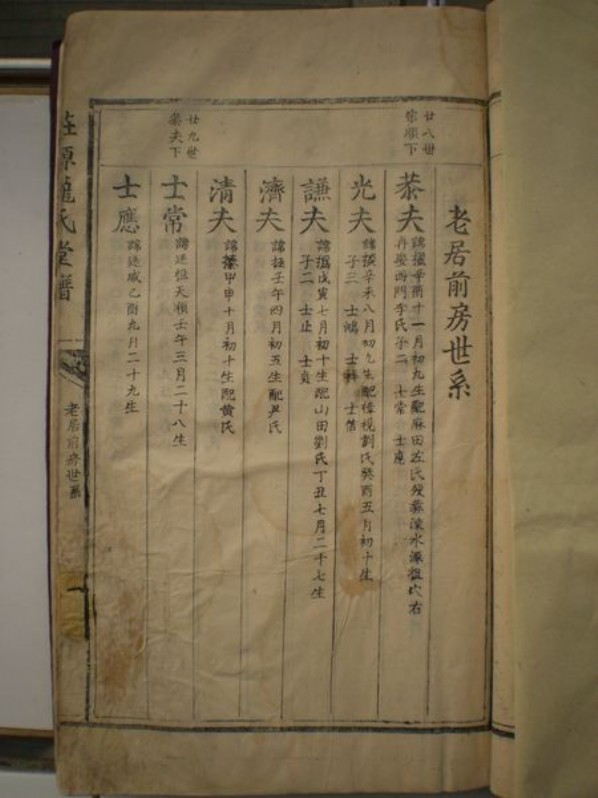 老居前房世系
廿八世
宗順下
恭夫
諱擢辛酉十一月初九生配麻田左氏歿葬漆水源祖穴右
再娶西門李氏子二 士常 士應
光夫
諱 辛未八月初九生配 視劉氏癸酉五月初十生
子三 士鴻 士 士偕
謙夫
諱 戊寅七月初十生配山田劉氏丁丑七月二十七生
子二 士止 士貞
濟夫
諱 壬午四月初五生配尹氏
清夫
諱 甲申十月初十生配黄氏
廿九世
恭夫下
士常
諱廷惟天順壬午三月二十八生
士應
諱廷 乙酉九月二十九生
氏堂譜
老居前房世系
一